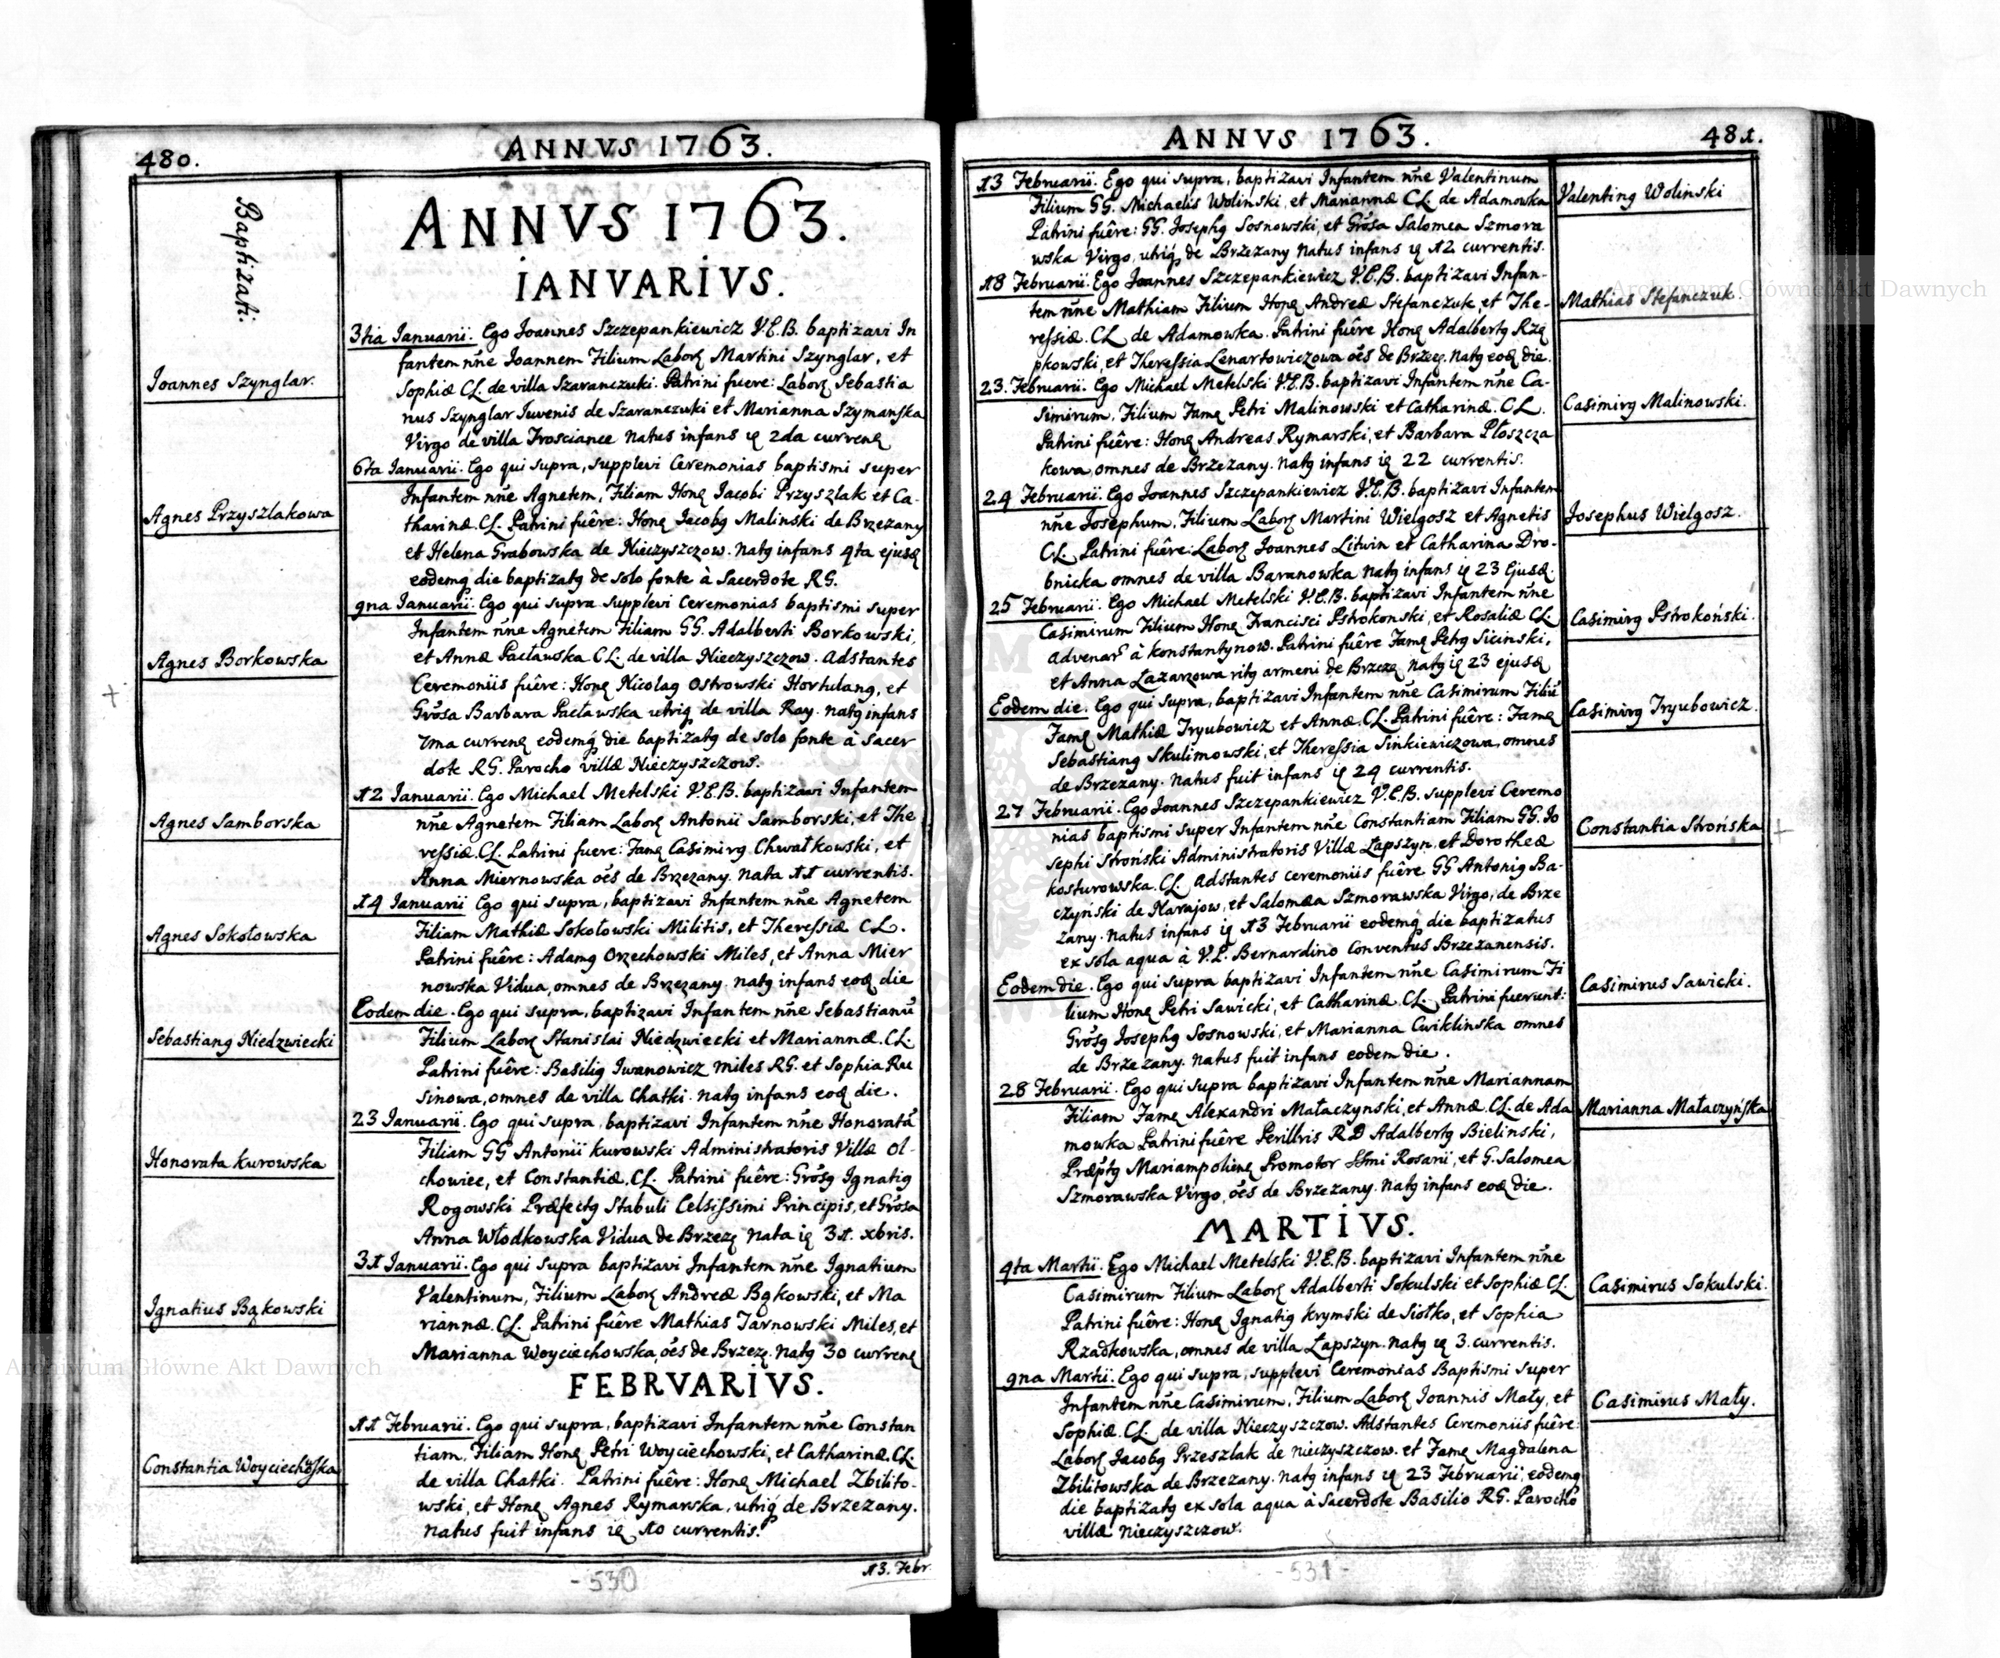 480.
ANNVS 1763.
Baptizati.
ANNVS 1763.
IANVARIVS.
Joannes Szynglar.
3tia Januarii. Ego Joannes Szczepankiewicz V.E.B. baptizavi In
fantem nñe Joannem Filium Labor Martini Szynglar, et
Sophiæ CL. de villa Szaranczuki. Patrini fuere: Labor Sebastia
nus Szynglar Iuvenis de Szaranczuki et Marianna Szymanska
Virgo de villa Trosciance Natus infans 2da curren
Agnes Przyszlakowa
6ta Januarii. Ego qui supra, supplevi Ceremonias baptismi super
Infantem nñe Agnetem, Filiam Hon Jacobi Przyszlak et Ca-
tharinæ CL. Patrini fuêre: Hon Jacobg Malinski de Brzezany
et Helena Grabowska de Nieczyszczow. Natg infans 4ta ejus
eodemq die baptizatg de solo fonte à Sacerdote RG.
Agnes Borkowska
9na Januarii. Ego qui supra supplevi Ceremonias baptismi super
Infantem nñe Agnetem Filiam GG. Adalberti Borkowski,
et Annæ Pacławska CL. de villa Nieczyszczow. Adstantes
Ceremoniis fuêre: Hon Nicolag Ostrowski Hortulang, et
Grõsa Barbara Pacławska utriq de villa Ray. Natg infans
7ma curren eodemq die baptizatg de solo fonte à Sacer
dote RG. Parocho villæ Nieczyszczow.
Agnes Samborska
12 Januarii. Ego Michael Metelski V.E.B. baptizavi Infantem
nñe Agnetem Filiam Labor Antonii Samborski, et The
ressiæ. CL. Patrini fuere: Fam Casimirg Chwałkowski, et
Anna Miernowska oẽs de Brzezany. Nata 11 currentis.
Agnes Sokołowska
14 Januarii Ego qui supra, baptizavi Infantem nñe Agnetem
Filiam Mathiæ Sokołowski Militis, et Theressiæ CL.
Patrini fuêre: Adamg Orzechowski Miles, et Anna Mier
nowska Vidua, omnes de Brzezany. Natg infans eod die
Sebastiang Niedzwiecki
Eodem die. Ego qui supra, baptizavi Infantem nñe Sebastianũ
Filium Labor Stanislai Niedzwiecki et Mariannæ. CL.
Patrini fuêre: Basilig Iwanowicz miles RG. et Sophia Ru
sinowa, omnes de villa Chatki. Natg infans eod die.
Honorata Kurowska
23 Januarii. Ego qui supra, baptizavi Infantem nñe Honoratã
Filiam GG Antonii Kurowski Administratoris Villæ Ol-
chowiec, et Constantiæ. CL. Patrini fuêre: Grõsg Ignatig
Rogowski Præfectg Stabuli Celsissimi Principis, et Grõsa
Anna Włodkowska Vidua de Brzez Nata 31. xbris.
Ignatius Bąkowski
31 Januarii. Ego qui supra baptizavi Infantem nñe Ignatium
Valentinum, Filium Labor Andreæ Bąkowski, et Ma
riannæ. CL. Patrini fuêre Mathias Tarnowski Miles, et
Marianna Woyciechowska, oẽs de Brzez. Natg 30 curren
FEBRVARIVS.
Constantia Woyciechowska
11 Februarii. Ego qui supra, baptizavi Infantem nñe Constan
tiam, Filiam Hon Petri Woyciechowski, et Catharinæ. CL.
de villa Chatki. Patrini fuêre: Hon Michael Zbilito-
wski, et Hon Agnes Rymarska, utriq de Brzezany.
Natus fuit infans 10 currentis.
13. Febr
- 530
ANNVS 1763.
481.
13 Februarii. Ego qui supra, baptizavi Infantem nñe Valentinum
Filium GG. Michaelis Wolinski, et Mariannæ CL. de Adamowka
Patrini fuêre: GG. Josephg Sosnowski, et Grõsa Salomea Szmora
wska Virgo, utriq de Brzezany Natus infans 12 currentis.
Valenting Wolinski
18 Februarii. Ego Joannes Szczepankiewicz V.E.B. baptizavi Infan-
tem nñe Mathiam Filium Hon Andreæ Stefanczuk, et The-
ressiæ. CL de Adamowka. Patrini fuêre Hon Adalbertg Rzę
pkowski, et Theressia Lenartowiczowa oẽs de Brzez. Natg eod die.
Mathias Stefanczuk.
23. Februarii. Ego Michael Metelski V.E.B. baptizavi Infantem nñe Ca-
simirum, Filium Fam Petri Malinowski et Catharinæ. CL.
Patrini fuêre: Hon Andreas Rymarski, et Barbara Płoszcza
kowa, omnes de Brzezany. Natg infans 22 currentis.
Casimirg Malinowski.
24 Februarii. Ego Joannes Szczepankiewicz V.E.B. baptizavi Infantem
nñe Josephum, Filium Labor Martini Wielgosz et Agnetis
CL. Patrini fuêre: Labor Joannes Litwin et Catharina Dro-
bnicka omnes de villa Baranowka Natg infans 23 Ejus.
Josephus Wielgosz.
25 Februarii. Ego Michael Metelski V.E.B. baptizavi Infantem nñe
Casimirum Filium Hon Francisci Pstrokonski, et Rosaliæ CL.
Advenar à Konstantynow. Patrini fuêre Fam Petrg Sicinski,
et Anna Łazarzowa ritg armeni de Brzez. Natg 23 ejus
Casimirg Pstrokoński.
Eodem die. Ego qui supra, baptizavi Infantem nñe Casimirum Filiũ
Fam Mathiæ Tryubowicz et Annæ. CL. Patrini fuêre: Fam
Sebastiang Skulimowski, et Theressia Sinkiewiczowa, omnes
de Brzezany. Natus fuit infans 24 currentis.
Casimirg Tryubowicz.
27 Februarii. Ego Joannes Szczepankiewicz V.E.B. supplevi Ceremo
nias baptismi super Infantem nñe Constantiam Filiam GG. Jo
sephi Stroński Administratoris Villæ Łapszyn, et Dorotheæ
Kosturowska. CL. Adstantes ceremoniis fuêre GG Antonig Ba-
czyński de Narajow, et Salomea Szmorawska Virgo, de Brze
zany. Natus infans 13 Februarii eodemq die baptizatus
ex sola aqua à V.P. Bernardino Conventus Brzezanensis.
Constantia Strońska
Eodem die. Ego qui supra baptizavi Infantem nñe Casimirum Fi
lium Hon Petri Sawicki, et Catharinæ CL. Patrini fuerunt:
Grõsg Josephg Sosnowski, et Marianna Cwiklinska omnes
de Brzezany. Natus fuit infans eodem die.
Casimirus Sawicki.
28 Februarii. Ego qui supra baptizavi Infantem nñe Mariannam
Filiam Fam Alexandri Małaczynski, et Annæ. CL. de Ada
mowka Patrini fuêre Perillris RD Adalbertg Bielinski,
Præptg Mariampolien Promotor SSmi Rosarii, et G. Salomea
Szmorawska Virgo, oẽs de Brzezany. Natg infans eod die.
Marianna Małaczyńska
MARTIVS.
4ta Martii. Ego Michael Metelski V.E.B. baptizavi Infantem nñe
Casimirum Filium Labor Adalberti Sokulski et Sophiæ CL.
Patrini fuêre: Hon Ignatig Krymski de Siołko, et Sophia
Rzadkowska, omnes de villa Łapszyn. Natg 3 currentis.
Casimirus Sokulski.
9na Martii. Ego qui supra, supplevi Ceremonias Baptismi super
Infantem nñe Casimirum, Filium Labor Joannis Mały, et
Sophiæ. CL. de villa Nieczyszczow. Adstantes Ceremoniis fuêre
Labor Jacobg Przeszlak de Nieczyszczow. et Fam Magdalena
Zbilitowska de Brzezany. Natg infans 23 Februarii, eodemq
die baptizatg ex sola aqua à Sacerdote Basilio RG. Parocho
villæ Nieczyszczow.
Casimirus Mały.
- 531 -
Archiwum Główne Akt Dawnych
Archiwum Główne Akt Dawnych